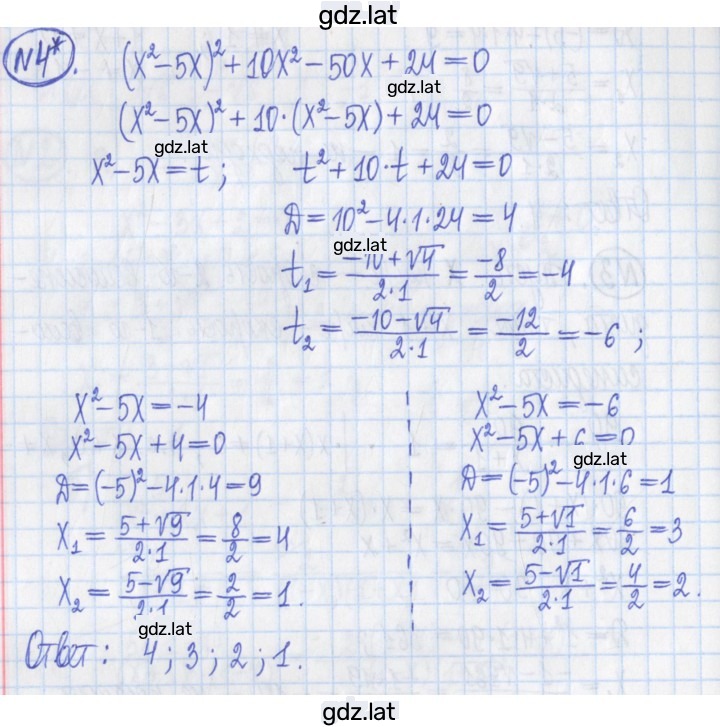 gdz.lat
N4*. (x²-5x)²+10x²-50x+24=0
gdz.lat
(x²-5x)²+10·(x²-5x)+24=0
gdz.lat
x²-5x=t; t²+10·t+24=0
D=10²-4·1·24=4
gdz.lat
t₁=(-10+√4)/(2·1)=-8/2=-4
t₂=(-10-√4)/(2·1)=-12/2=-6;
x²-5x=-4
x²-5x+4=0
D=(-5)²-4·1·4=9
x₁=(5+√9)/(2·1)=8/2=4
x₂=(5-√9)/(2·1)=2/2=1.
x²-5x=-6
x²-5x+6=0
gdz.lat
D=(-5)²-4·1·6=1
x₁=(5+√1)/(2·1)=6/2=3
x₂=(5-√1)/(2·1)=4/2=2.
gdz.lat
Ответ: 4; 3; 2; 1.
gdz.lat